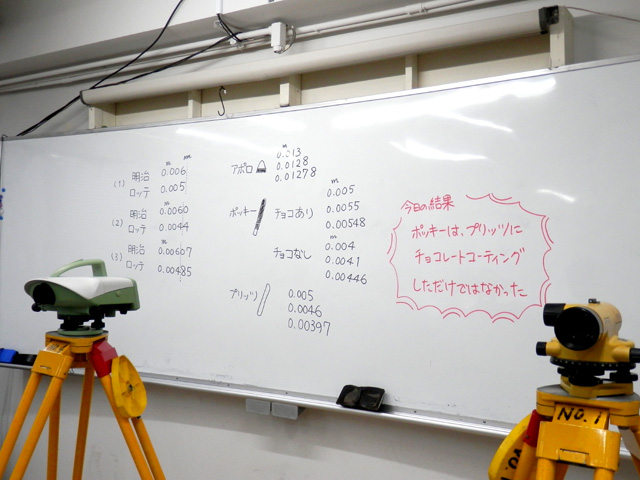 m mm
(1) 明治 0.006
ロッテ 0.005
(2) 明治 0.0060
ロッテ 0.0044
(3) 明治 0.00607
ロッテ 0.00485
m
アポロ 0.013
0.0128
0.01278
m
ポッキー チョコあり 0.005
0.0055
0.00548
m
チョコなし 0.004
0.0041
0.00446
プリッツ 0.005
0.0046
0.00397
今日の結果
ポッキーは、プリッツに
チョコレートコーティング
しただけではなかった
NO.1